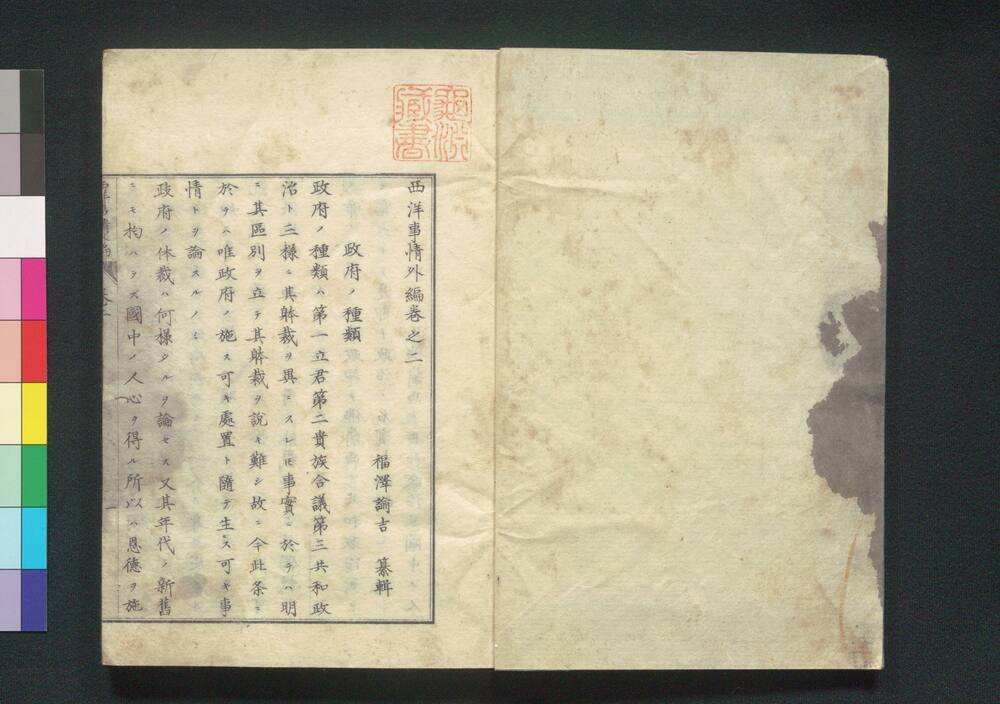 西洋事情外編巻之二
福澤諭吉 纂輯
政府ノ種類
政府ノ種類ハ第一立君第二貴族合議第三共和政
治ト三様ニ其躰裁ヲ異ニスレ𪜈事實ニ於テハ明
ニ其區別ヲ立テ其躰裁ヲ說キ難シ故ニ今此条ニ
於テハ唯政府ノ施ス可キ處置ト隨テ生ス可キ事
情トヲ論スルノミ
政府ノ体裁ハ何様タルヲ論セス又其年代ノ新舊
ニモ拘ハラズ國中ノ人心ヲ得ル所以ハ恩德ヲ施
藏書